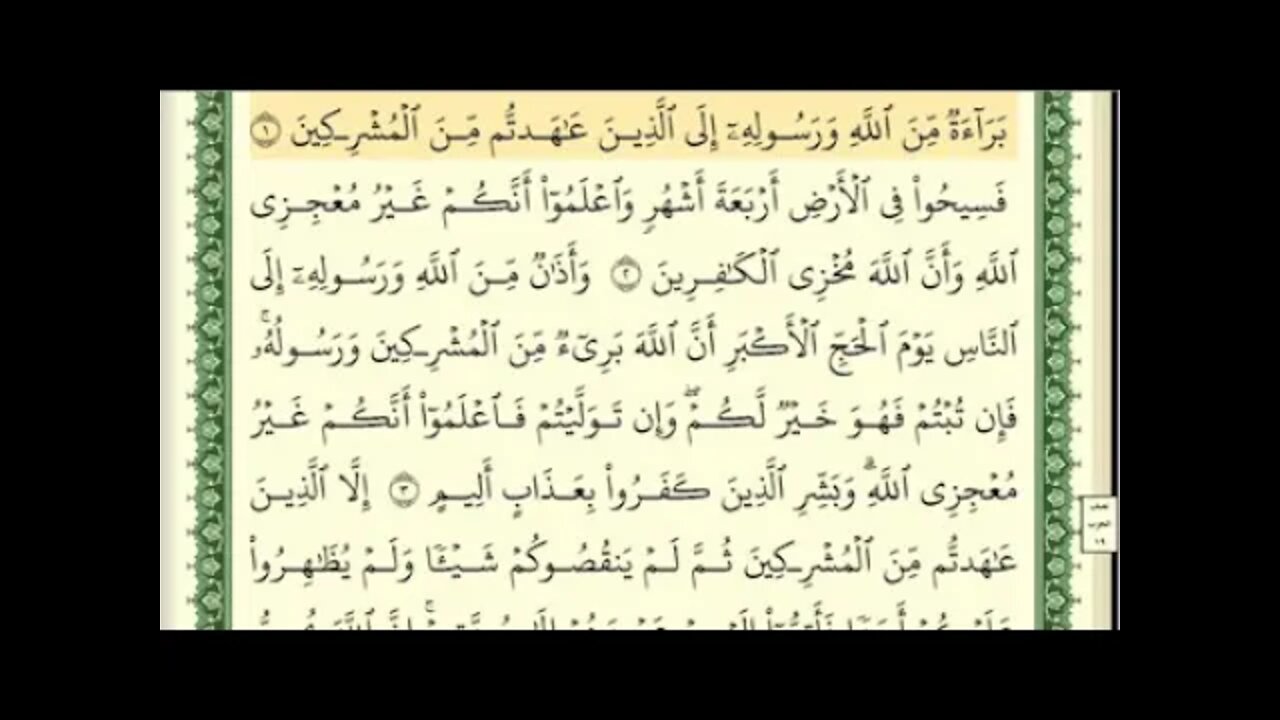 بَرَآءَةٌ مِّنَ ٱللَّهِ وَرَسُولِهِۦٓ إِلَى ٱلَّذِينَ عَـٰهَدتُّم مِّنَ ٱلْمُشْرِكِينَ ١
فَسِيحُوا۟ فِى ٱلْأَرْضِ أَرْبَعَةَ أَشْهُرٍ وَٱعْلَمُوٓا۟ أَنَّكُمْ غَيْرُ مُعْجِزِى
ٱللَّهِ وَأَنَّ ٱللَّهَ مُخْزِى ٱلْكَـٰفِرِينَ ٢ وَأَذَٰنٌ مِّنَ ٱللَّهِ وَرَسُولِهِۦٓ إِلَى
ٱلنَّاسِ يَوْمَ ٱلْحَجِّ ٱلْأَكْبَرِ أَنَّ ٱللَّهَ بَرِىٓءٌ مِّنَ ٱلْمُشْرِكِينَ وَرَسُولُهُۥ ۚ
فَإِن تُبْتُمْ فَهُوَ خَيْرٌ لَّكُمْ ۖ وَإِن تَوَلَّيْتُمْ فَٱعْلَمُوٓا۟ أَنَّكُمْ غَيْرُ
مُعْجِزِى ٱللَّهِ ۗ وَبَشِّرِ ٱلَّذِينَ كَفَرُوا۟ بِعَذَابٍ أَلِيمٍ ٣ إِلَّا ٱلَّذِينَ
عَـٰهَدتُّم مِّنَ ٱلْمُشْرِكِينَ ثُمَّ لَمْ يَنقُصُوكُمْ شَيْـًٔا وَلَمْ يُظَـٰهِرُوا۟